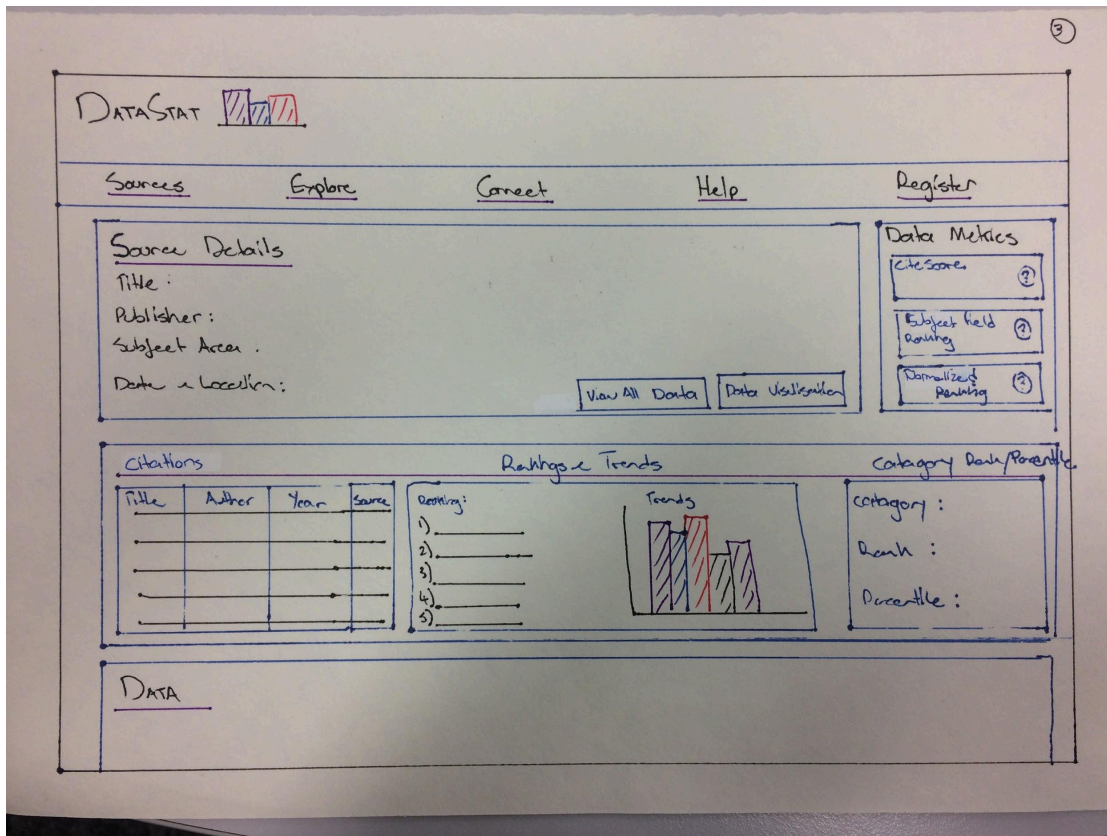 3
DATASTAT
Sources Explore Connect Help Register
Source Details
Title :
Publisher :
Subject Area :
Date & Location:
View All Data Data Visulisation
Data Metrics
CiteScores ?
Subject Field ?
Ranking
Normalized ?
Ranking
Citations Rankings & Trends Catagory Rank/Percentile
Title Author Year Source
Ranking:
1)
2)
3)
4)
5)
Trends
Catagory :
Rank :
Percentile :
DATA